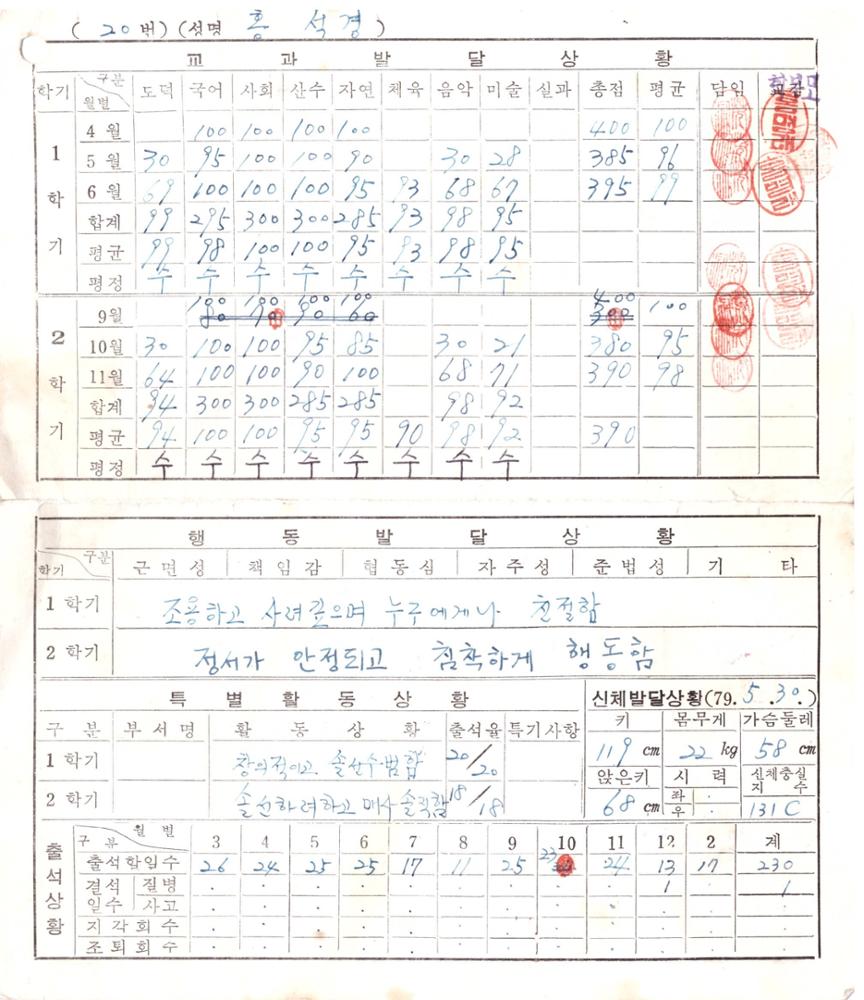 ( 20번) (성명 홍 석 경 )
교 과 발 달 상 황
학기 구분 월별 도덕 국어 사회 산수 자연 체육 음악 미술 실과 총점 평균 담임 교감
1학기
4월 100 100 100 100 400 100
5월 30 95 100 100 90 30 28 385 96
6월 69 100 100 100 95 93 68 67 395 99
합계 99 295 300 300 285 93 98 95
평균 99 98 100 100 95 93 98 95
평정 수 수 수 수 수 수 수 수
2학기
9월 100 100 100 100 400 100
10월 30 100 100 95 85 30 21 380 95
11월 64 100 100 90 100 68 71 390 98
합계 94 300 300 285 285 98 92
평균 94 100 100 95 95 90 98 92 390
평정 수 수 수 수 수 수 수 수
행 동 발 달 상 황
학기 구분 근면성 책임감 협동심 자주성 준법성 기 타
1 학기 조용하고 사려깊으며 누구에게나 친절함
2 학기 정서가 안정되고 침착하게 행동함
특 별 활 동 상 황
구 분 부서명 활 동 상 황 출석율 특기사항
1 학기 창의적이고 솔선수범함 20/20
2 학기 솔선하려하고 매사 솔직함 18/18
신체발달상황(79. 5. 30.)
키 몸무게 가슴둘레
119 cm 22 kg 58 cm
앉은키 시 력 신체충실지수
68 cm 좌 우 131 C
출석상황
구분 월별 3 4 5 6 7 8 9 10 11 12 2 계
출석할일수 26 24 25 25 17 11 25 23 24 13 17 230
결석일수 질병 1 1
사고
지각회수
조퇴회수